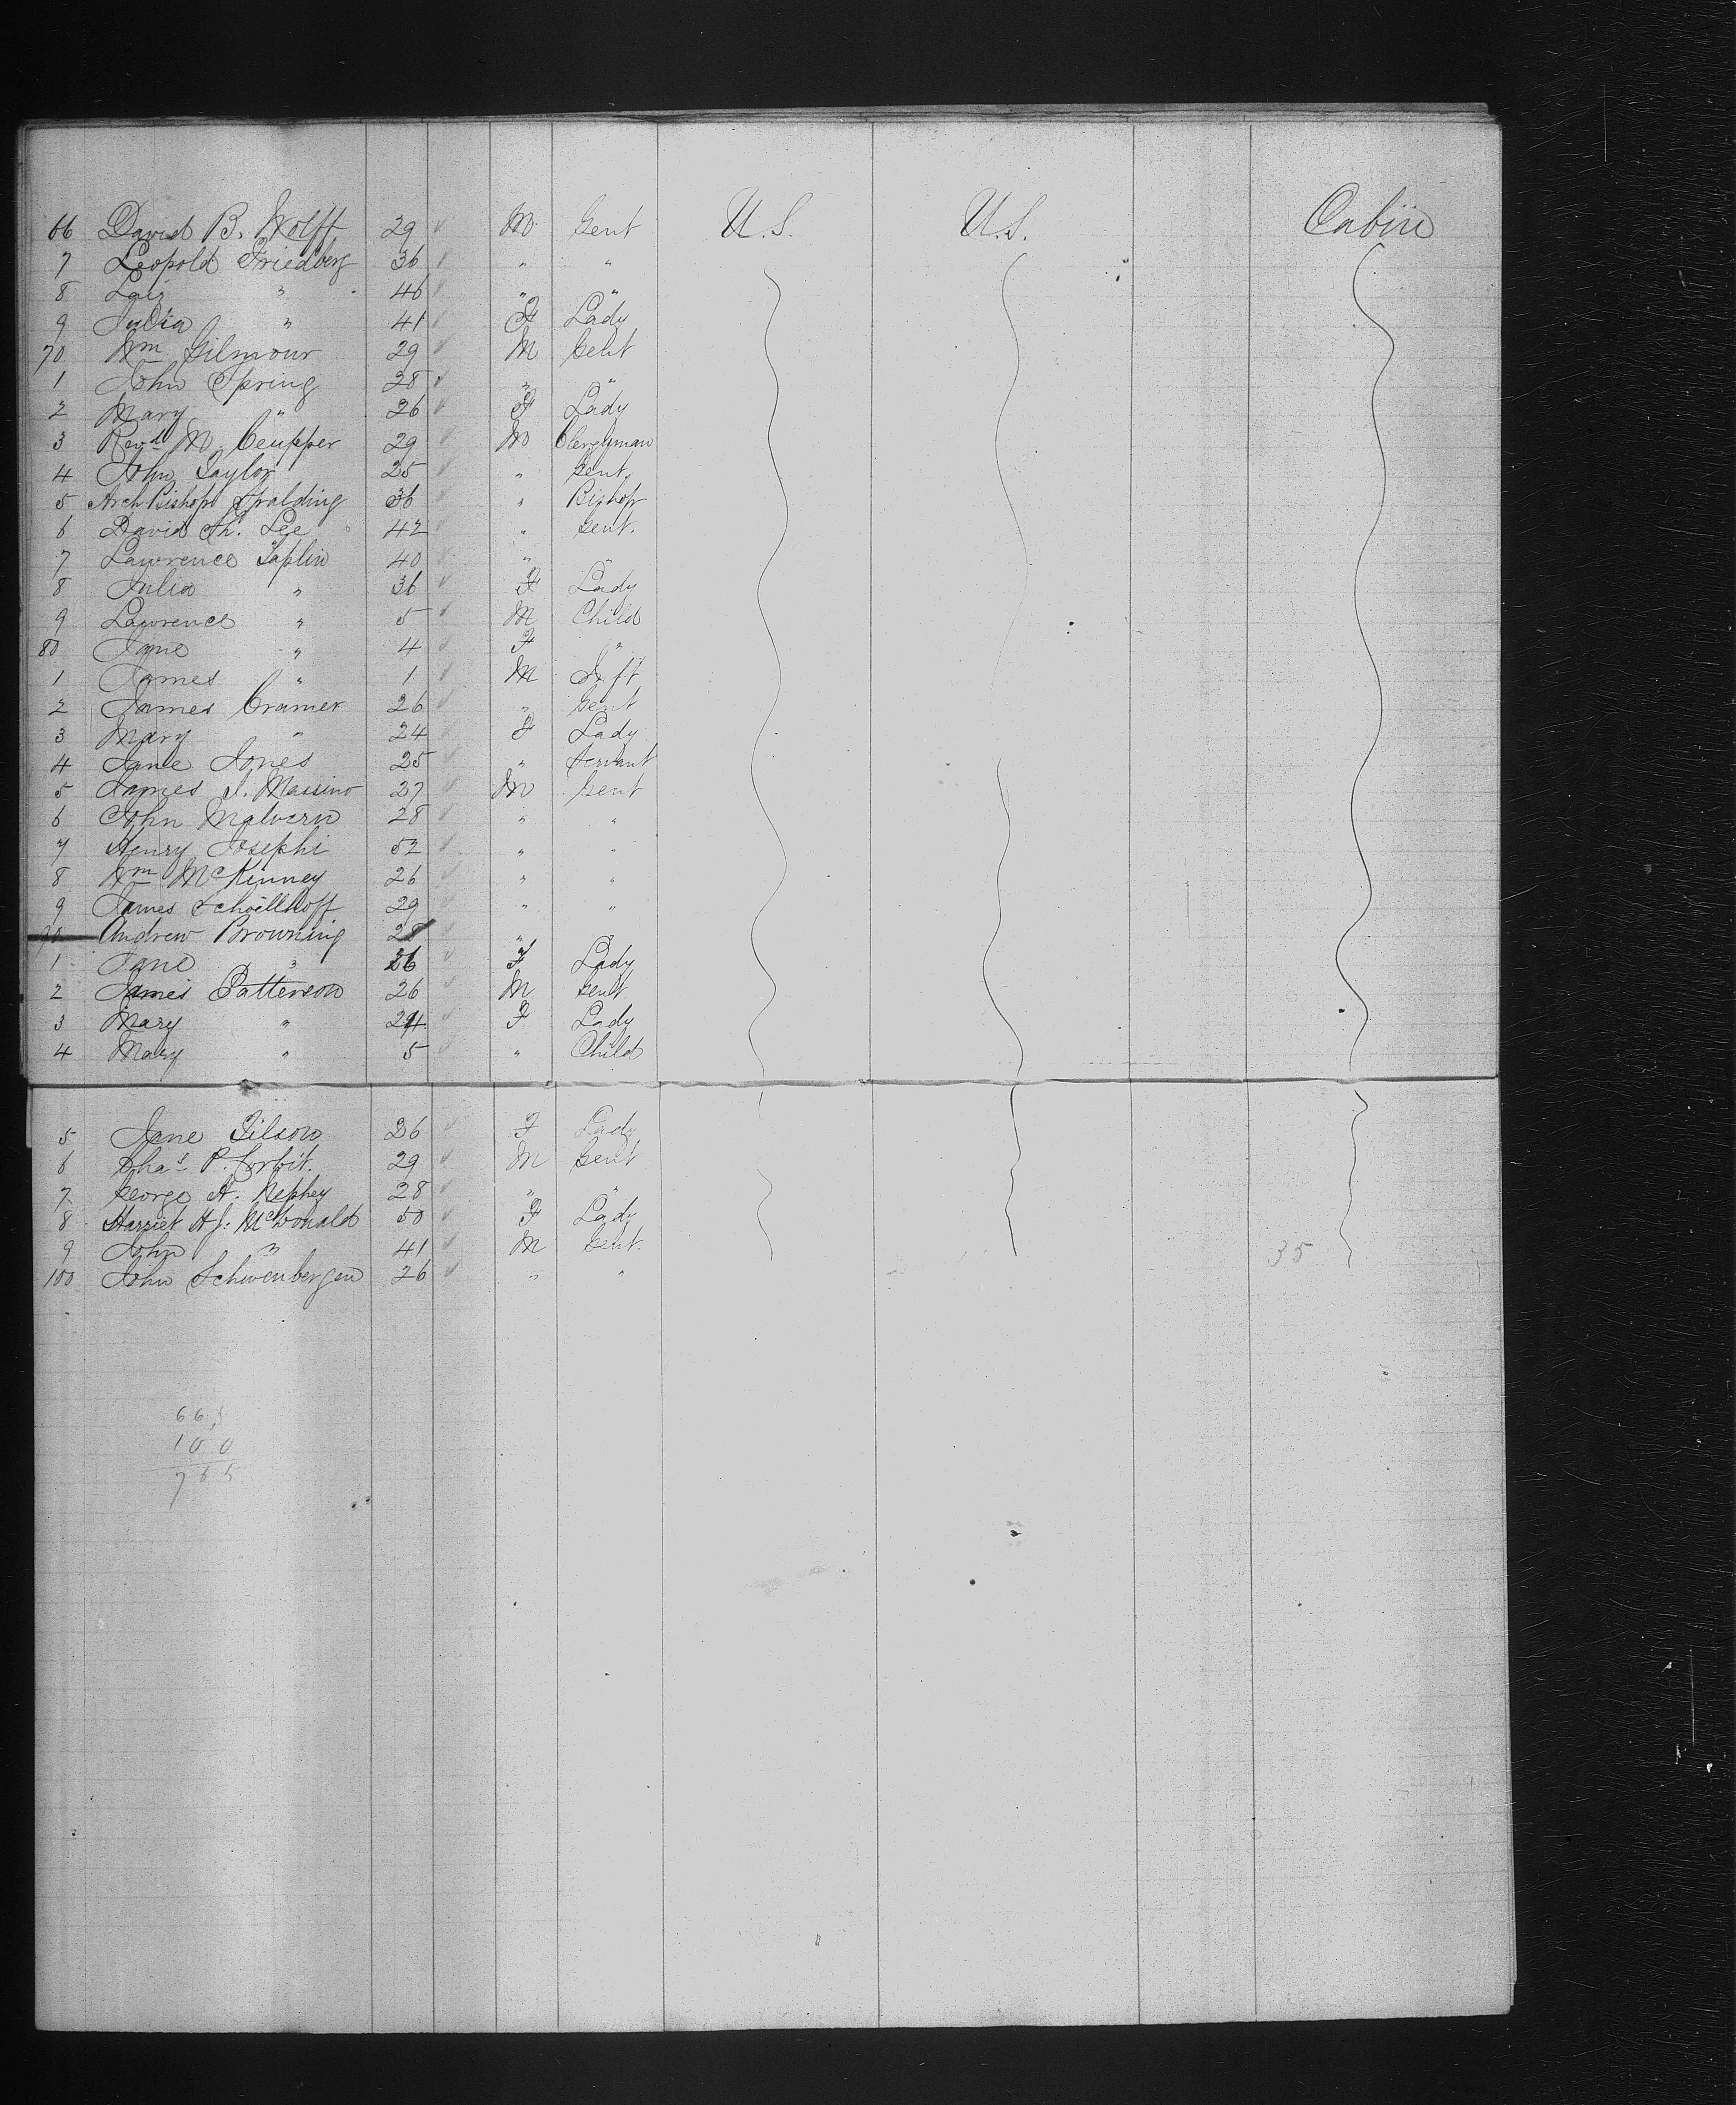 66 David B. Wolff 29 M Gent U.S. U.S. Cabin
7 Leopold Friedberg 36 " "
8 " 46 " "
9 Julia " 41 F Lady
70 Wm Gilmour 29 M Gent
1 John Spring 28 " "
2 Mary " 26 F Lady
3 Revd M. Ceupper 29 M Clergyman
4 John Taylor 25 " Gent.
5 Arch Bishop Spalding 36 " Bishop
6 David Th. Lee 42 " Gent.
7 Lawrence Taplin 40 " "
8 Julia " 36 F Lady
9 Lawrence " 5 M Child
80 Jane " 4 F "
1 James " 1 M Ift
2 James Cramer 26 " Gent
3 Mary " 24 F Lady
4 Jane Jones 25 " Servant
5 James J. Massino 27 M Gent
6 John Malvern 28 " "
7 Henry Josephi 52 " "
8 Wm McKinney 26 " "
9 James Schoellhoff 29 " "
90 Andrew Browning 28 " "
1 Jane " 26 F Lady
2 James Patterson 26 M Gent
3 Mary " 24 F Lady
4 Mary " 5 " Child
5 Jane Tilson 26 F Lady
6 Chas P. Corbit. 29 M Gent
7 George A. Nephey 28 " "
8 Harriet A J. McDonald 50 F Lady
9 John " 41 M Gent. 35
100 John Schwenbergen 26 " "
665
100
765